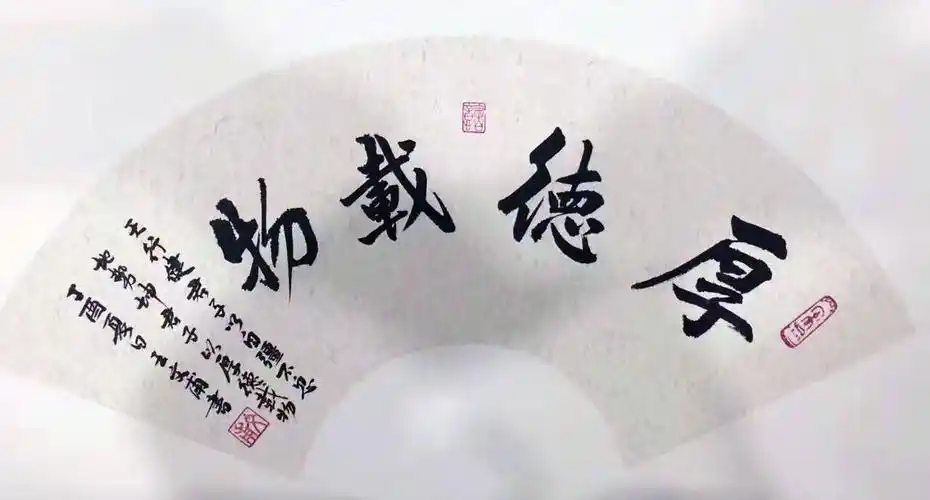 厚德載物
天行健君子以自彊不息
地势坤君子以厚德載物
丁酉夏日王書